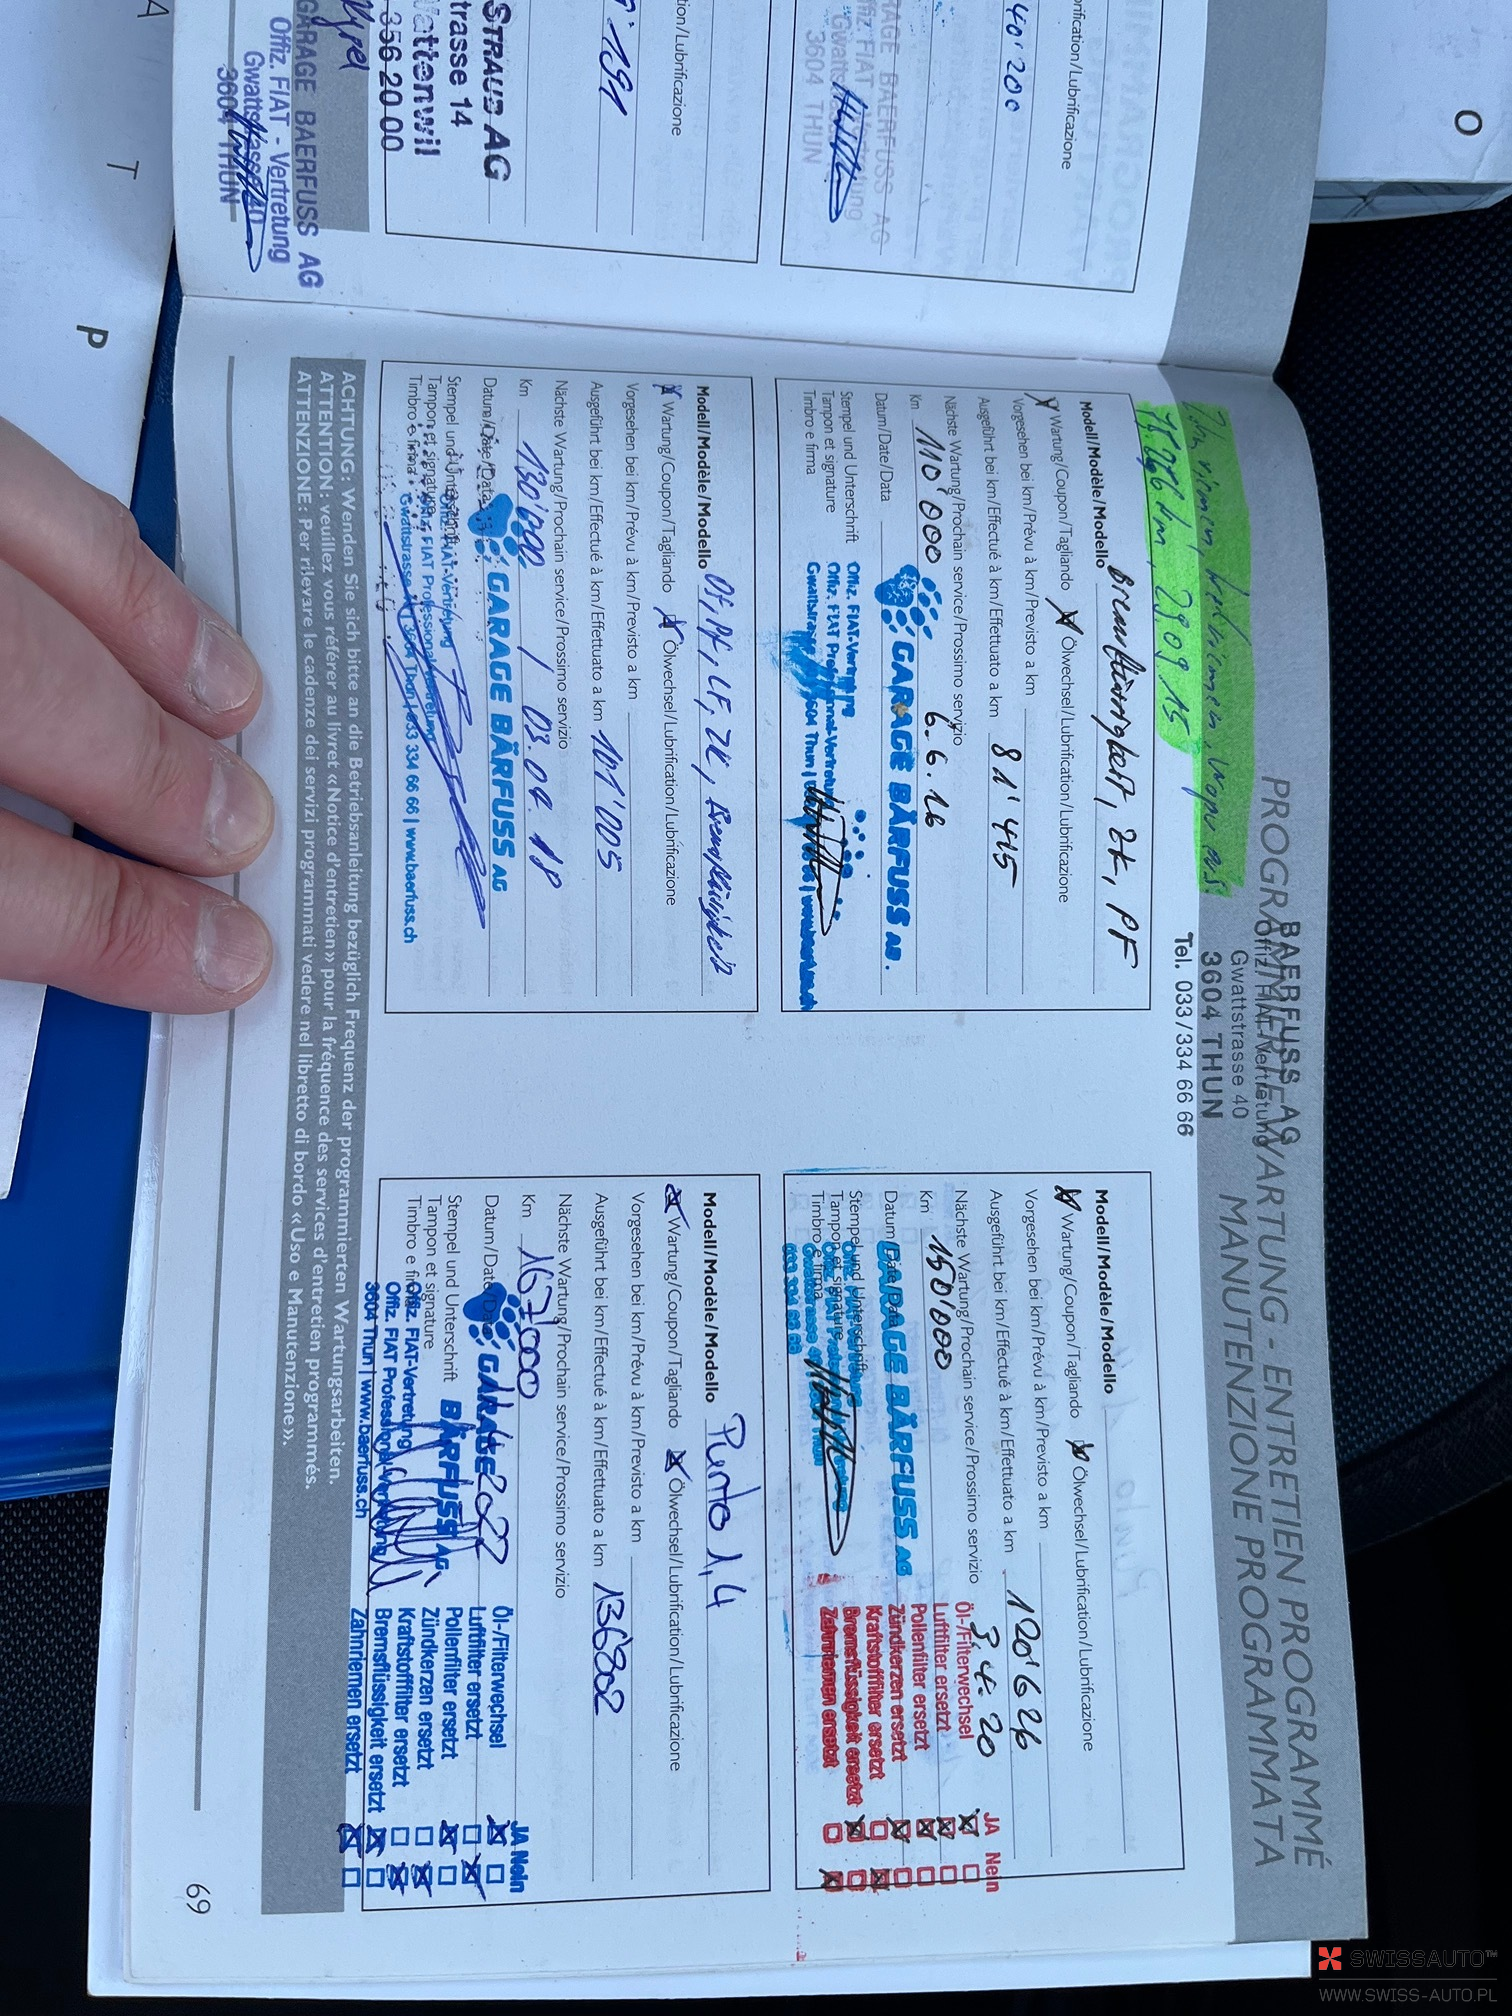 PROGRAMMIERTE WARTUNG - ENTRETIEN PROGRAMMÉ
MANUTENZIONE PROGRAMMATA
BAERFUSS AG
Offiz. FIAT-Vertretung
Gwattstrasse 40
3604 THUN
Tel. 033/334 66 66
29.09.15
Modell/Modèle/Modello Bremsflüssigkeit, ZK, PF
Wartung/Coupon/Tagliando Ölwechsel/Lubrification/Lubrificazione
Vorgesehen bei km/Prévu à km/Previsto a km
Ausgeführt bei km/Effectué à km/Effettuato a km 81'415
Nächste Wartung/Prochain service/Prossimo servizio
Km 110'000 6.6.16
Datum/Date/Data
Stempel und Unterschrift
Tampon et signature
Timbro e firma
GARAGE BÄRFUSS AG
Offiz. FIAT-Vertretung
Offiz. FIAT Professional-Vertretung
Modell/Modèle/Modello
Wartung/Coupon/Tagliando Ölwechsel/Lubrification/Lubrificazione
Vorgesehen bei km/Prévu à km/Previsto a km
Ausgeführt bei km/Effectué à km/Effettuato a km 120'626
Nächste Wartung/Prochain service/Prossimo servizio 3.4.20
Km 150'000
Datum/Date/Data
Stempel und Unterschrift
Tampon et signature
Timbro e firma
GARAGE BÄRFUSS AG
JA Nein
Öl-/Filterwechsel
Luftfilter ersetzt
Pollenfilter ersetzt
Zündkerzen ersetzt
Kraftstofffilter ersetzt
Bremsflüssigkeit ersetzt
Zahnriemen ersetzt
Modell/Modèle/Modello ÖF, PF, LF, ZK, Bremsflüssigkeit
Wartung/Coupon/Tagliando Ölwechsel/Lubrification/Lubrificazione
Vorgesehen bei km/Prévu à km/Previsto a km
Ausgeführt bei km/Effectué à km/Effettuato a km 101'005
Nächste Wartung/Prochain service/Prossimo servizio
Km 130'000 / 03.04.18
Datum/Date/Data
Stempel und Unterschrift
Tampon et signature
Timbro e firma
GARAGE BÄRFUSS AG
Offiz. FIAT-Vertretung
Offiz. FIAT Professional-Vertretung
Gwattstrasse 3604 Thun | 033 334 66 66 | www.baerfuss.ch
Modell/Modèle/Modello Punto 1,4
Wartung/Coupon/Tagliando Ölwechsel/Lubrification/Lubrificazione
Vorgesehen bei km/Prévu à km/Previsto a km
Ausgeführt bei km/Effectué à km/Effettuato a km 136802
Nächste Wartung/Prochain service/Prossimo servizio
Km 167000
Datum/Date/Data
Stempel und Unterschrift
Tampon et signature
Timbro e firma
GARAGE
BÄRFUSS AG
Offiz. FIAT-Vertretung
Offiz. FIAT Professional-Vertretung
3604 Thun | www.baerfuss.ch
JA Nein
Öl-/Filterwechsel
Luftfilter ersetzt
Pollenfilter ersetzt
Zündkerzen ersetzt
Kraftstofffilter ersetzt
Bremsflüssigkeit ersetzt
Zahnriemen ersetzt
ACHTUNG: Wenden Sie sich bitte an die Betriebsanleitung bezüglich Frequenz der programmierten Wartungsarbeiten.
ATTENTION: veuillez vous référer au livret «Notice d'entretien» pour la fréquence des services d'entretien programmés.
ATTENZIONE: Per rilevare le cadenze dei servizi programmati vedere nel libretto di bordo «Uso e Manutenzione».
69
40'200
rification/Lubrificazione
RAGE BAERFUSS AG
3604 THUN
tion/Lubrificazione
STRAUB AG
trasse 14
attenwil
356 20 00
GARAGE BAERFUSS AG
Offiz. FIAT - Vertretung
Gwattstrasse 40
3604 THUN
A
T
P
O
SWISSAUTO™
WWW.SWISS-AUTO.PL